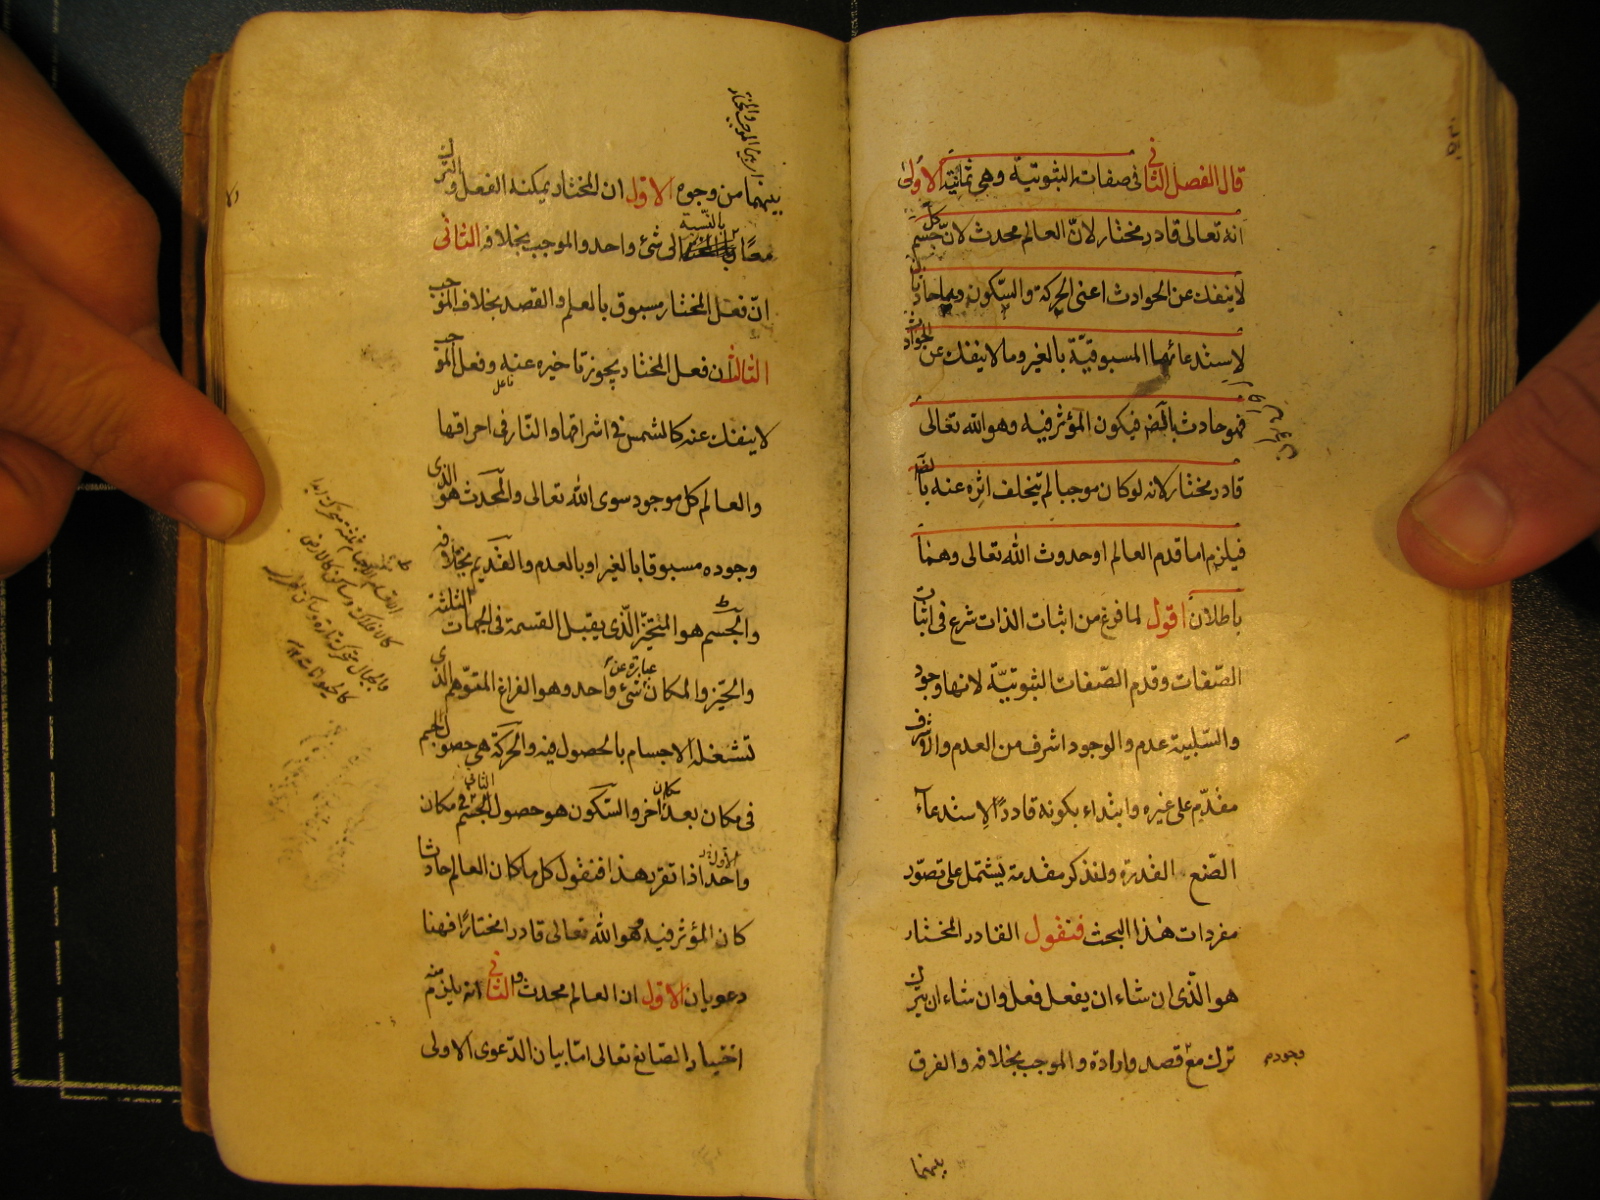 قال الفصل الثانى فى صفات الثبوتيّة وهى ثمانية الأولى
انه تعالى قادر مختار لانّ العالم محدث لانّ كلّ جسم
لا ينفك عن الحوادث اعنى الحركة والسّكون وهما حادثان
لاستدعائهما المسبوقيّة بالغير وما لا ينفك عن الحوادث
فهو حادث بالضر فيكون المؤثر فيه وهو الله تعالى
قادر مختار لانه لو كان موجبا لم يتخلف اثره عنه بالضر
فيلزم اما قدم العالم او حدوث الله تعالى وهما
باطلان اقول لما فرغ من اثبات الذات شرع فى اثبات
الصّفات وقدم الصّفات الثبوتيّة لانها وجود
والسّلبية عدم والوجود اشرف من العدم والاشرف
مقدّم على غيره وابتداء بكونه قادرًا لاستدعآء
الصّنع القدرة ولنذكر مقدمة يشتمل على تصوّر
مفردات هذا البحث فنقول القادر المختار
هو الّذى ان شاء ان يفعل فعل وان شاء ان يترك
ترك مع قصد وارادة والموجب بخلافه والفرق
بينهما
بينهما من وجوه الاوّل ان المختار يمكنه الفعل والترك
معًا بالنّسبة الى شئ واحد والموجب بخلافه الثانى
انّ فعل المختار مسبوق بالعلم والقصد بخلاف الموجب
الثالث ان فعل المختار يجوز تاخيره عنه وفعل الموجب
لا ينفك عنه كالشمس فى اشراقها والنّار فى احراقها
والعالم كل موجود سوى الله تعالى والمحدث هو الذى
وجوده مسبوقا بالغير او بالعدم والقديم بخلافه
والجسم هو المتحيّز الّذى يقبل القسمة فى الجهات الثلثة
والحيّز والمكان عبارة عن شئ واحد وهو الفراغ المتوهم الذى
تشغله الاجسام بالحصول فيه والحركة هى حصول الجسم
فى مكان بعد مكان اخر والسّكون هو حصول الثانى الجسم فى مكان
واحد الاول اذا تقرر هذا فنقول كل ما كان العالم حادثا
كان المؤثر فيه وهو الله تعالى قادرا مختارًا فهنا
دعويان الاوّل ان العالم محدث والثانى انه يلزم منه
اختيار الصّانع تعالى امّا بيان الدّعوى الاولى